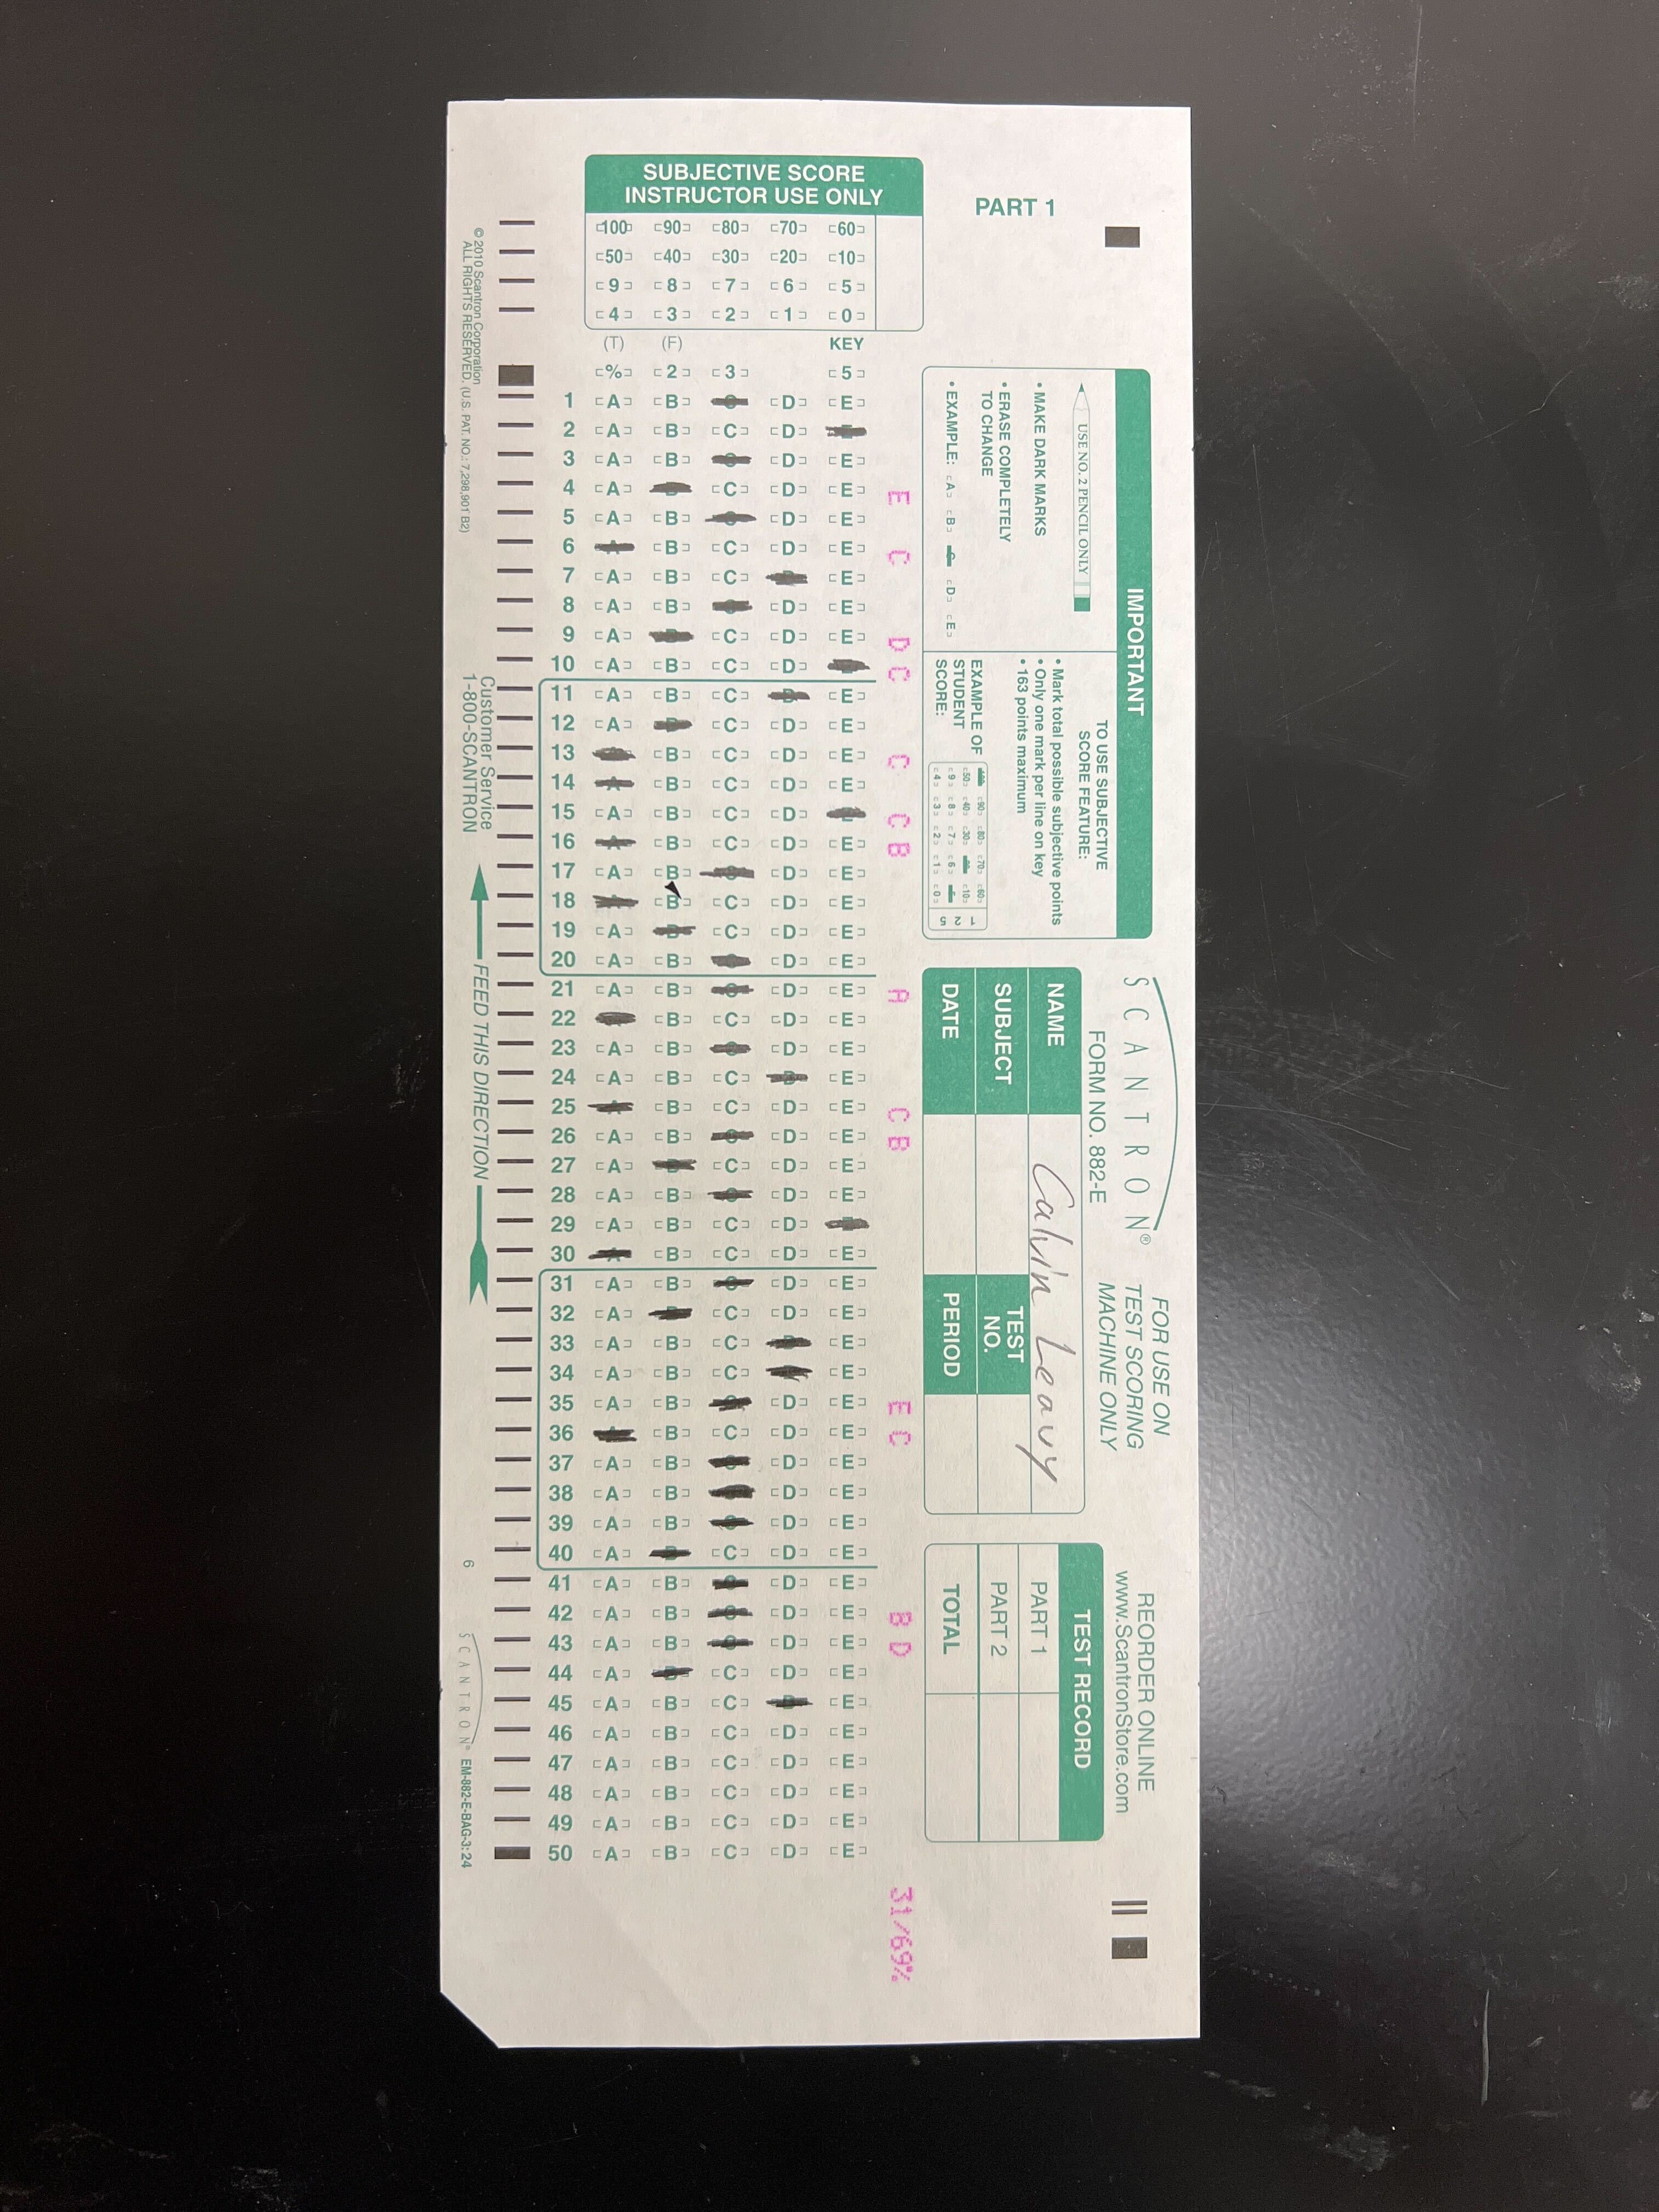 PART 1
SUBJECTIVE SCORE
INSTRUCTOR USE ONLY
100 90 80 70 60
50 40 30 20 10
9 8 7 6 5
4 3 2 1 0
(T) (F) KEY
% 2 3 5
1 A B D E
2 A B C D
3 A B D E
4 A C D E E
5 A B D E
6 B C D E C
7 A B C E
8 A B D E
9 A C D E D
10 A B C D C
11 A B C E
12 A C D E
13 B C D E C
14 B C D E
15 A B C D C
16 B C D E B
17 A B D E
18 B C D E
19 A C D E
20 A B D E
21 A B D E A
22 B C D E
23 A B D E
24 A B C E
25 B C D E C
26 A B D E
27 A C D E
28 A B D E
29 A B C D
30 B C D E
31 A B D E
32 A C D E
33 A B C E
34 A B C E
35 A B D E E
36 B C D E C
37 A B D E
38 A B D E
39 A B D E
40 A C D E
41 A B D E
42 A B D E B
43 A B D E D
44 A C D E
45 A B C E
46 A B C D E
47 A B C D E
48 A B C D E
49 A B C D E
50 A B C D E
31/69%
IMPORTANT
USE NO. 2 PENCIL ONLY
• MAKE DARK MARKS
• ERASE COMPLETELY
TO CHANGE
• EXAMPLE: A B D E
TO USE SUBJECTIVE
SCORE FEATURE:
• Mark total possible subjective points
• Only one mark per line on key
• 163 points maximum
EXAMPLE OF
STUDENT
SCORE:
90 80 70 60
50 40 30 10
9 8 7 6
4 3 2 1 0
1 2 5
SCANTRON®
FORM NO. 882-E
FOR USE ON
TEST SCORING
MACHINE ONLY
NAME Calvin Leavy
SUBJECT
TEST
NO.
DATE
PERIOD
REORDER ONLINE
www.ScantronStore.com
TEST RECORD
PART 1
PART 2
TOTAL
© 2010 Scantron Corporation
ALL RIGHTS RESERVED. (U.S. PAT. NO.: 7,298,901 B2)
Customer Service
1-800-SCANTRON
FEED THIS DIRECTION
6
SCANTRON® EM-882-E-BAG-3: 24